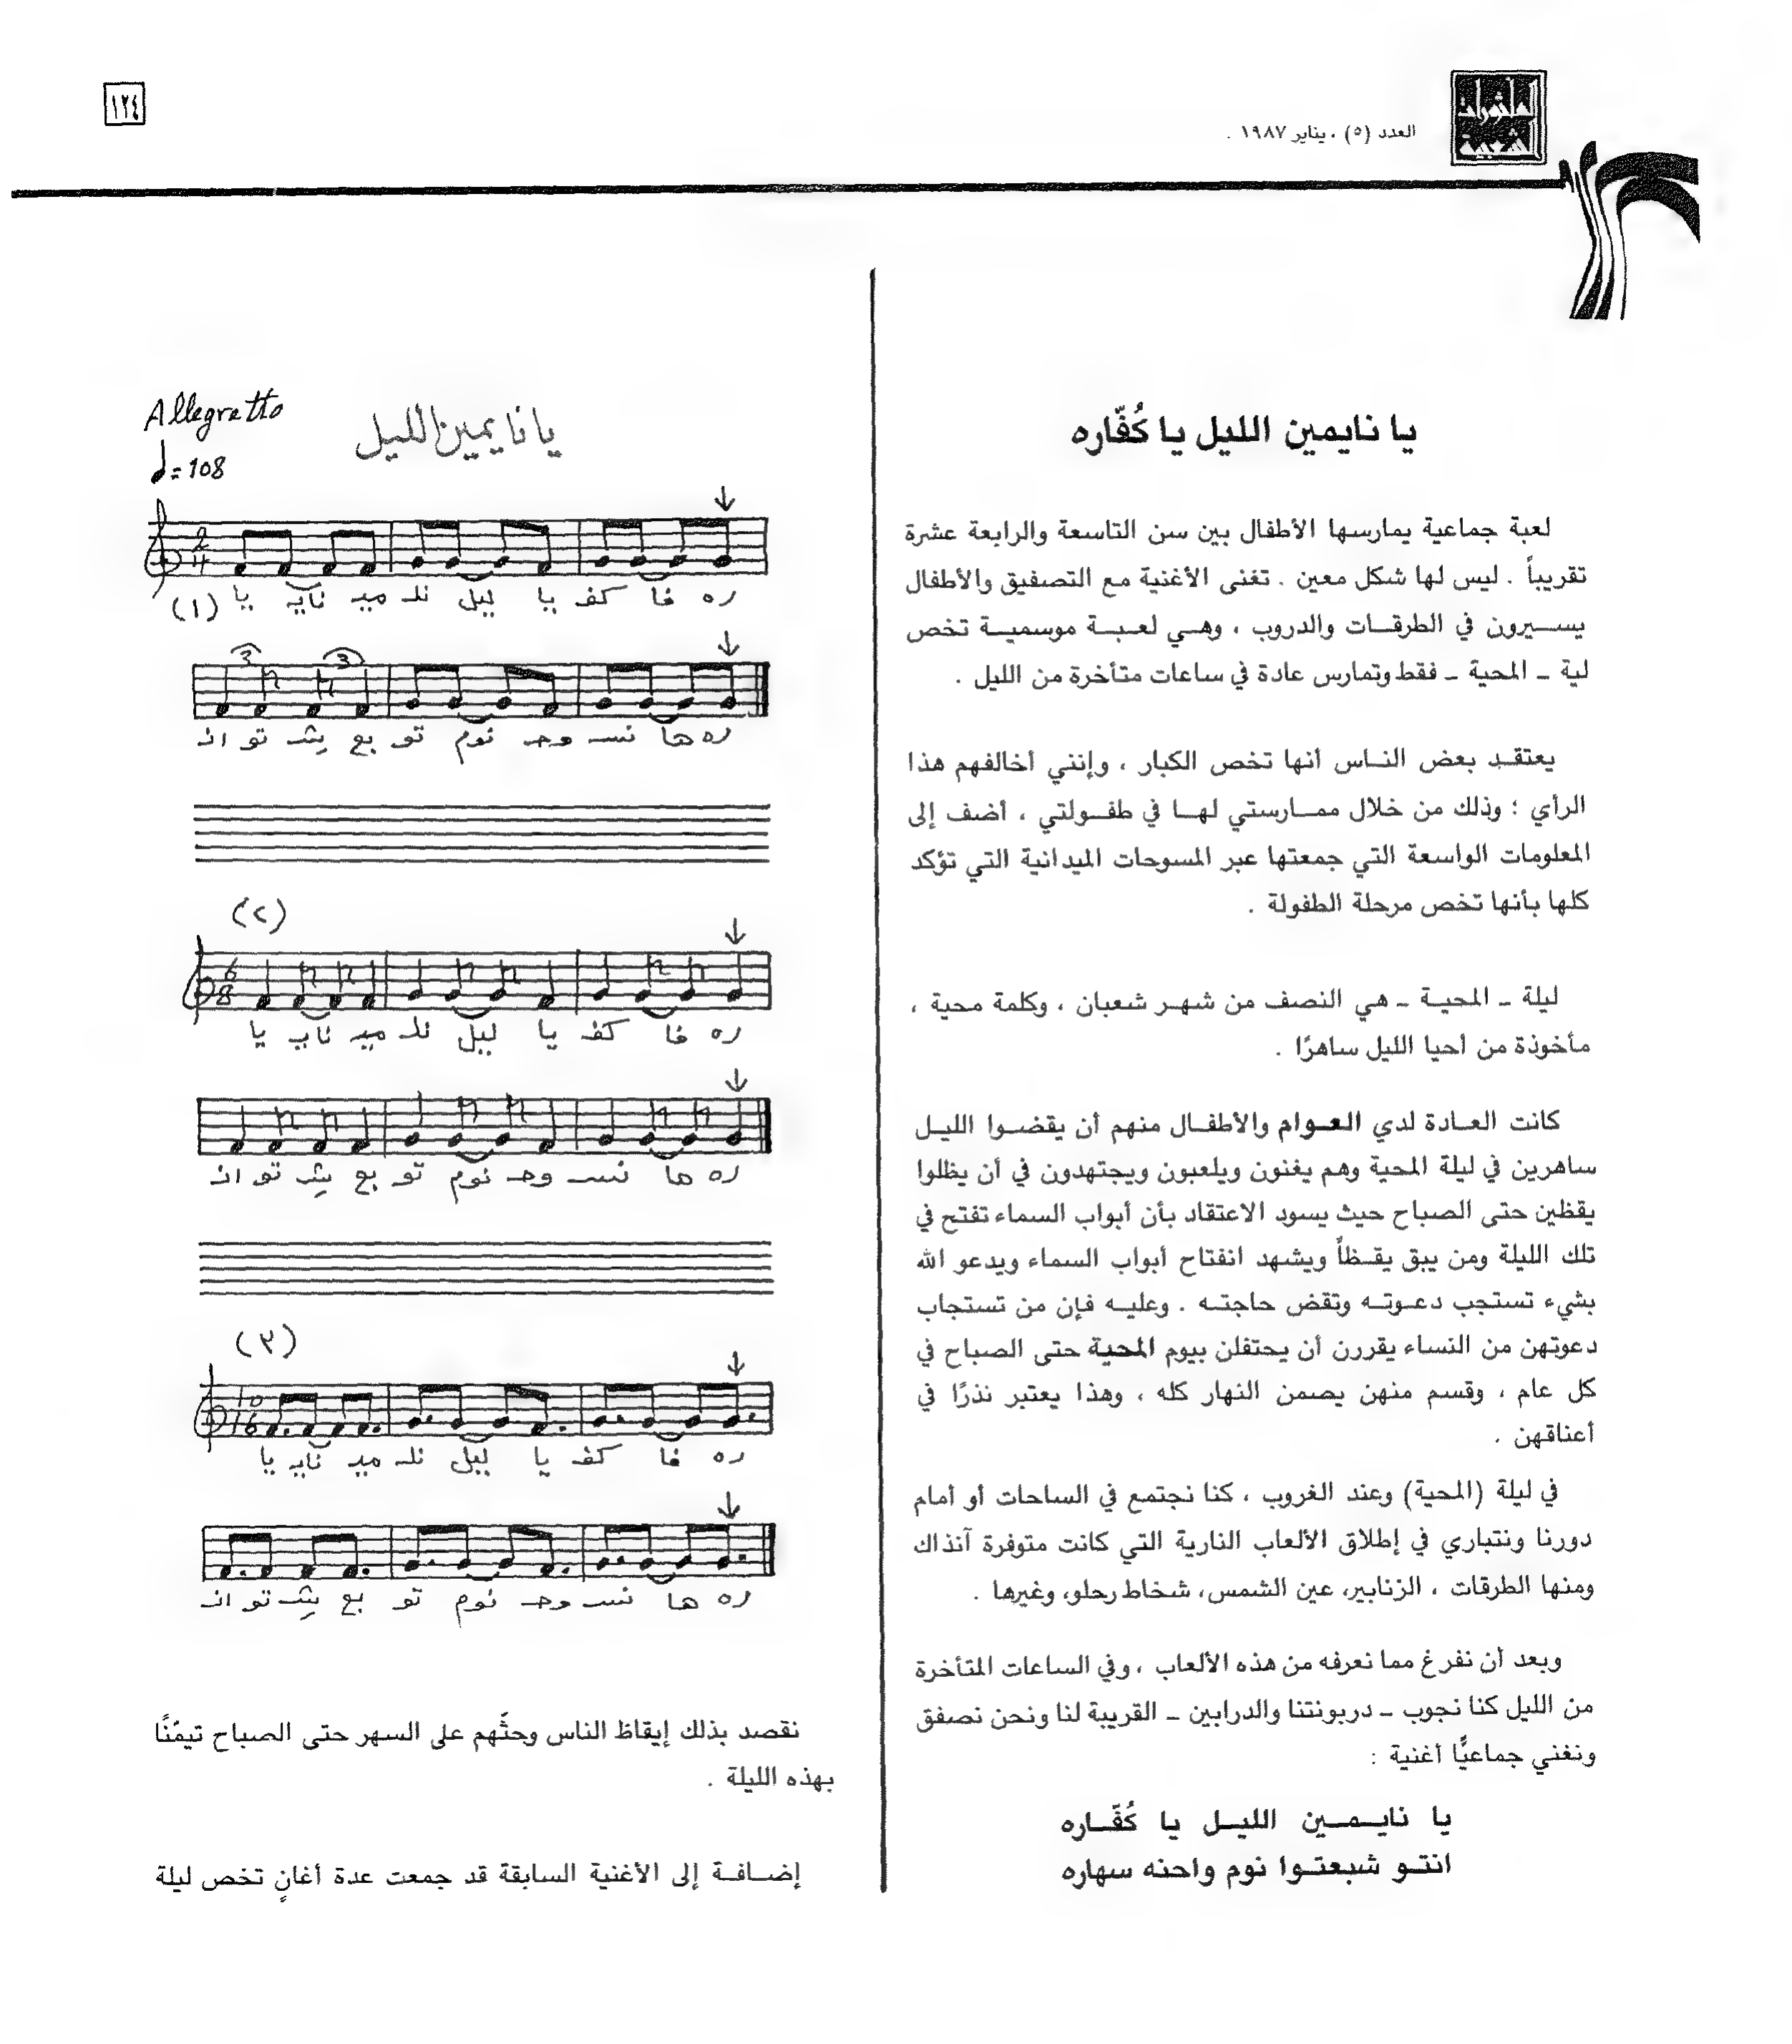 ١٢٤
العدد (٥) ، يناير ١٩٨٧ .
المأثورات
الشعبية
يا نايمين الليل يا كُفّاره
لعبة جماعية يمارسها الأطفال بين سن التاسعة والرابعة عشرة
تقريباً . ليس لها شكل معين . تغنى الأغنية مع التصفيق والأطفال
يســـيرون في الطرقــات والدروب ، وهــي لعـبــة موسميــة تخص
لية ـ المحية ـ فقط وتمارس عادة في ساعات متأخرة من الليل .
يعتقـد بعض النـاس أنها تخص الكبار ، وإنني أخالفهم هذا
الرأي ؛ وذلك من خلال ممــارستي لهــا في طفــولتي ، أضف إلى
المعلومات الواسعة التي جمعتها عبر المسوحات الميدانية التي تؤكد
كلها بأنها تخص مرحلة الطفولة .
ليلة ـ المحيـة ـ هي النصف من شهـر شعبان ، وكلمة محية ،
مأخوذة من أحيا الليل ساهرًا .
كانت العـادة لدي العـوام والأطفـال منهم أن يقضـوا الليـل
ساهرين في ليلة المحية وهم يغنون ويلعبون ويجتهدون في أن يظلوا
يقظين حتى الصباح حيث يسود الاعتقاد بأن أبواب السماء تفتح في
تلك الليلة ومن يبق يقـظاً ويشهد انفتاح أبواب السماء ويدعو الله
بشيء تستجب دعـوتـه وتقض حاجتـه . وعليـه فإن من تستجاب
دعوتهن من النساء يقررن أن يحتفلن بيوم المحية حتى الصباح في
كل عام ، وقسم منهن يصمن النهار كله ، وهذا يعتبر نذرًا في
أعناقهن .
في ليلة (المحية) وعند الغروب ، كنا نجتمع في الساحات أو أمام
دورنا ونتباري في إطلاق الألعاب النارية التي كانت متوفرة آنذاك
ومنها الطرقات ، الزنابير، عين الشمس، شخاط رحلو، وغيرها .
وبعد أن نفرغ مما نعرفه من هذه الألعاب ، وفي الساعات المتأخرة
من الليل كنا نجوب ـ دربونتنا والدرابين ـ القريبة لنا ونحن نصفق
ونغني جماعيًّا أغنية :
يا نايــمــين الليــل يا كُفّــاره
انتـو شبعتـوا نوم واحنه سهاره
Allegretto
♩=108
يا نايمين الليل
(١)
يا نايـ ميـ نلـ ليل يا كفـ فا ره
انـ تو شـ بع تو نوم وحـ نسـ ها ره
(٢)
يا نايـ ميـ نلـ ليل يا كفـ فا ره
انـ تو شـ بع تو نوم وحـ نسـ ها ره
(٣)
يا نايـ ميـ نلـ ليل يا كفـ فا ره
انـ تو شـ بع تو نوم وحـ نسـ ها ره
نقصد بذلك إيقاظ الناس وحثّهم على السهر حتى الصباح تيمّنًا
بهذه الليلة .
إضــافــة إلى الأغنية السابقة قد جمعت عدة أغانٍ تخص ليلة